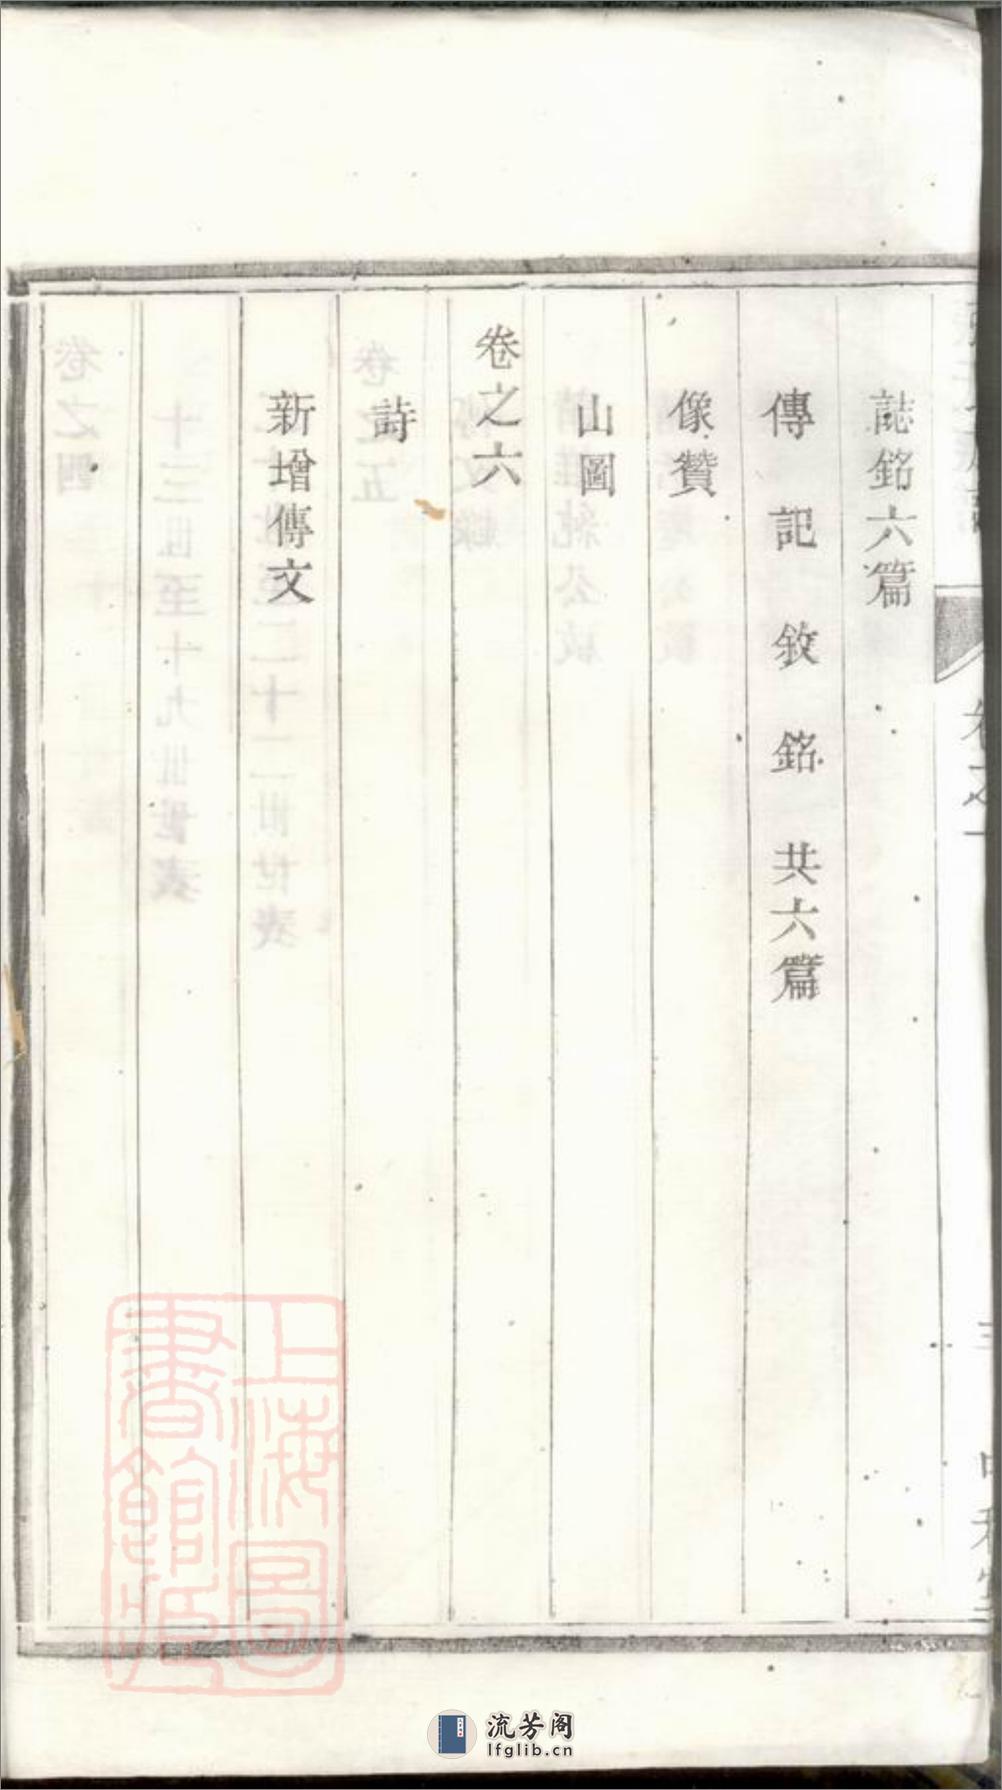 誌銘六篇
傳記敘銘共六篇
像贊
山圖
卷之六
詩
新增傳文
卷之一
上海圖書館藏
流芳阁
lfglib.cn